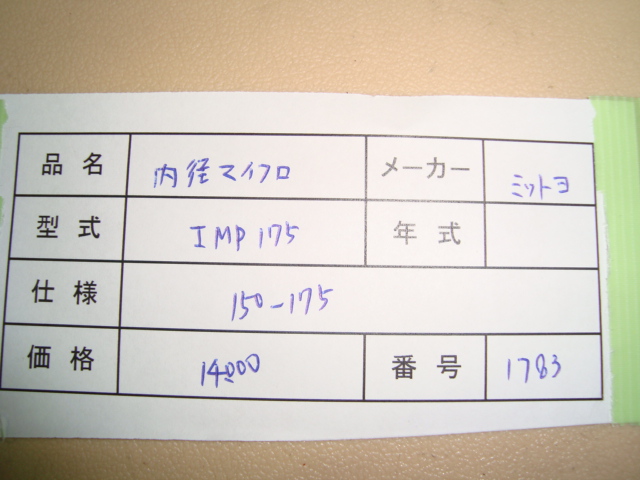 品名 内径マイクロ メーカー ミットヨ
型式 IMP175 年式
仕様 150-175
価格 14000 番号 1783